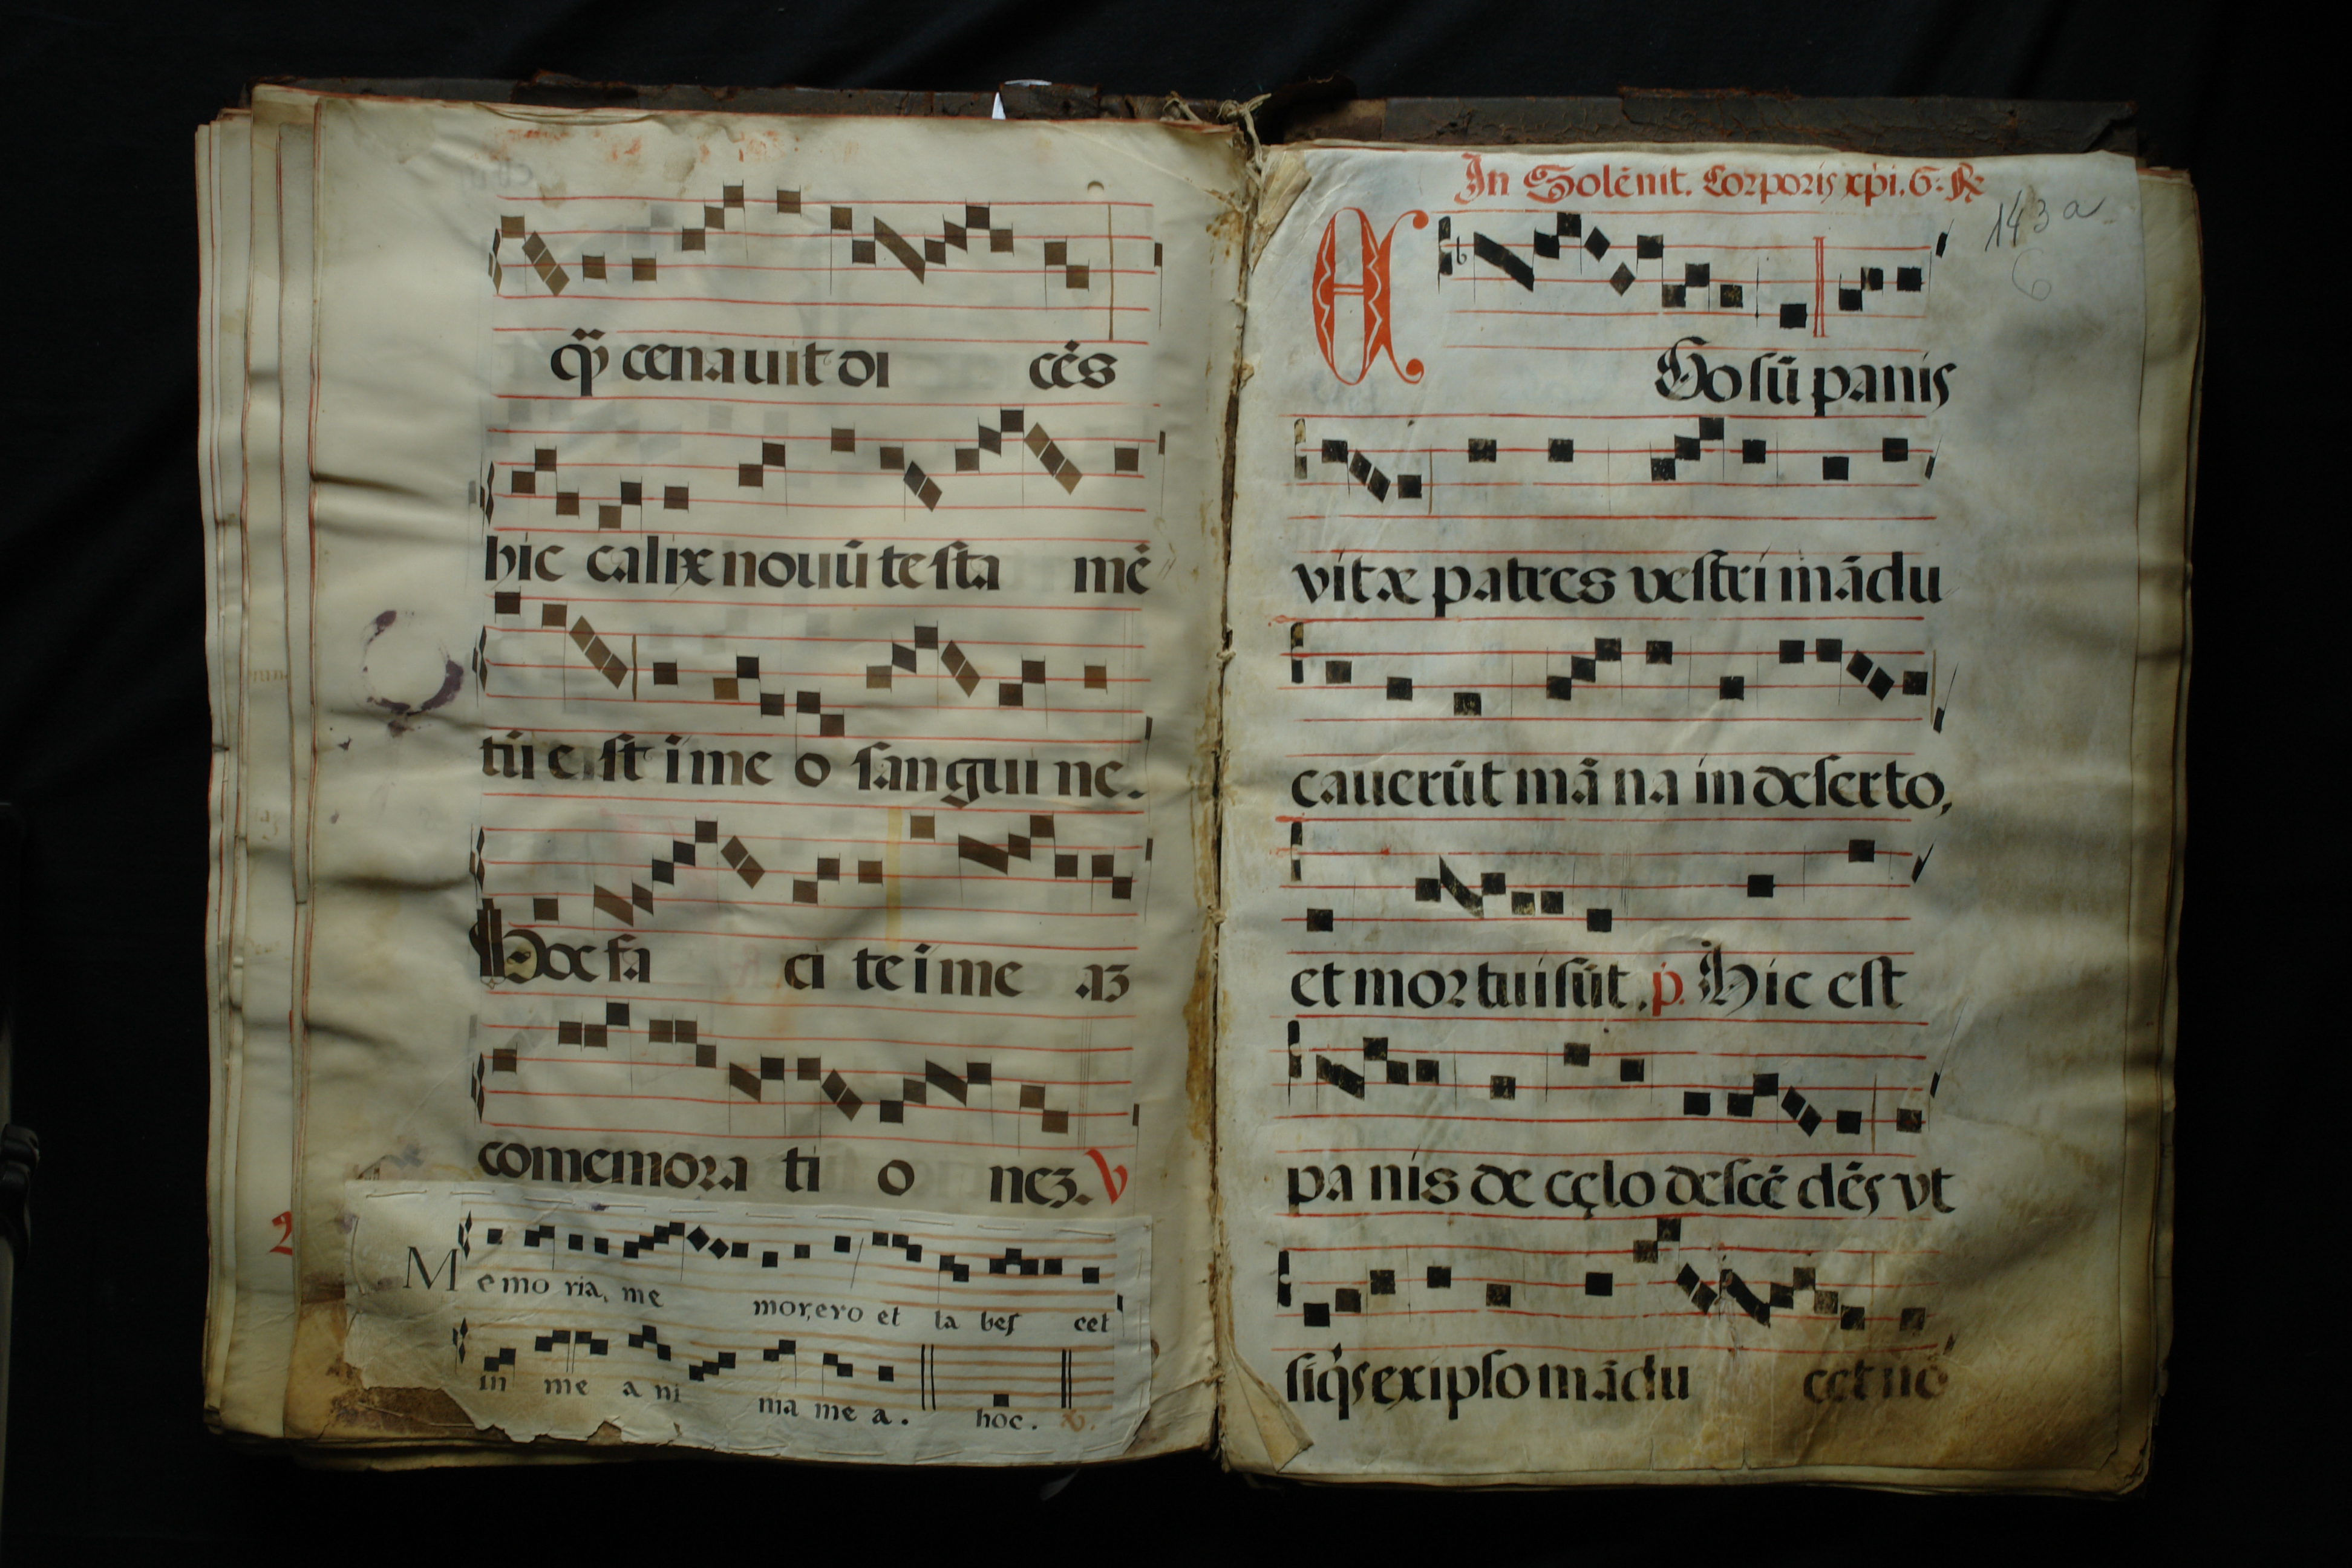 q̃ȝ cenauit di cẽs
hic calix nouũ testa mẽ
tũ est i me o sangui ne.
Hoc fa ci te i me aʒ
comemora ti o neʒ. V
Memo ria, me mor, ero et ta bes cet
in me a ni ma me a. hoc.
In Solẽnit. Corporis xp̃i. 6. ℟
143a
6
Ego sũ panis
vitæ patres vestri mãdu
cauerũt mã na in deserto,
et mortui sũt. p. Hic est
pa nis de cęlo descẽ dẽs vt
siq̃s ex ipso mãdu cet nõ